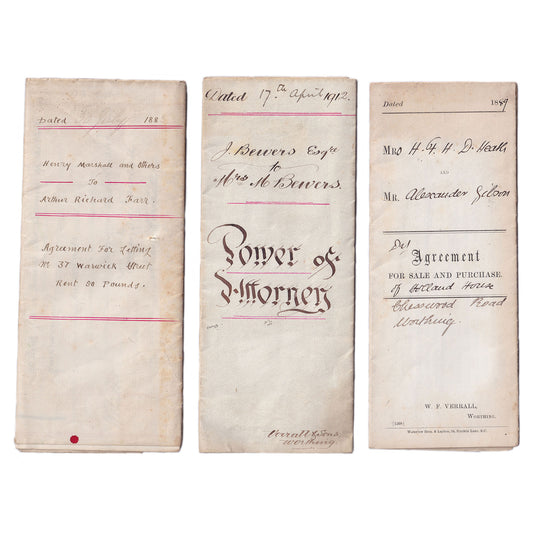 Dated July 188
Henry Marshall and Others
To
Arthur Richard Farr.
Agreement For Letting
No 37 Warwick Street
Rent 80 Pounds.
Dated 17th April 1912.
J. Bewers Esqre
to
Mrs M Bewers.
Power of
Attorney
Verrall & Sons,
Worthing.
Dated 1889
Mrs H. G. H. D. Heath
AND
MR. Alexander Gibson
Agreement
FOR SALE AND PURCHASE.
of Holland House
Chesswood Road
Worthing.
W. F. VERRALL,
WORTHING.
Waterlow Bros. & Layton,